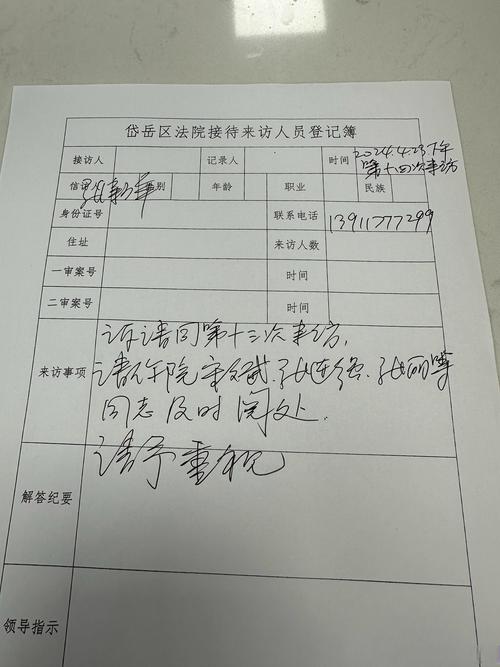 岱岳区法院接待来访人员登记簿
接访人 记录人 时间 2024.4.23下午
第十四次来访
信访人 别 年龄 职业 民族
身份证号 联系电话 13911777299
住址 来访人数
一审案号 时间
二审案号 时间
来访事项 诉请同第十三次来访,
请 院 张连强、张丽
同志及时阅处.
请予重视
解答纪要
领导指示